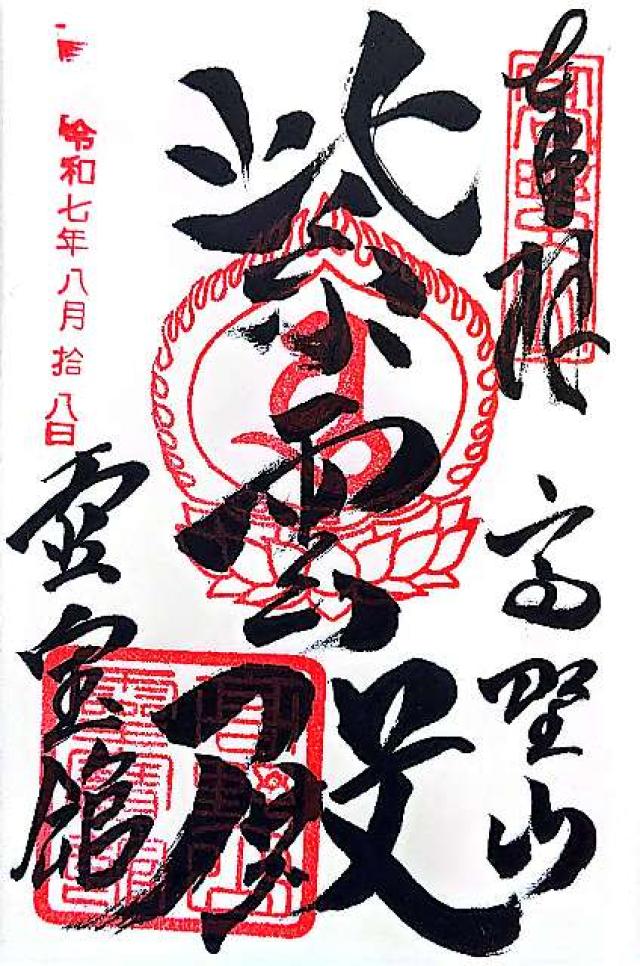 奉拝
高野山
紫雲殿
令和七年八月拾八日
霊宝館